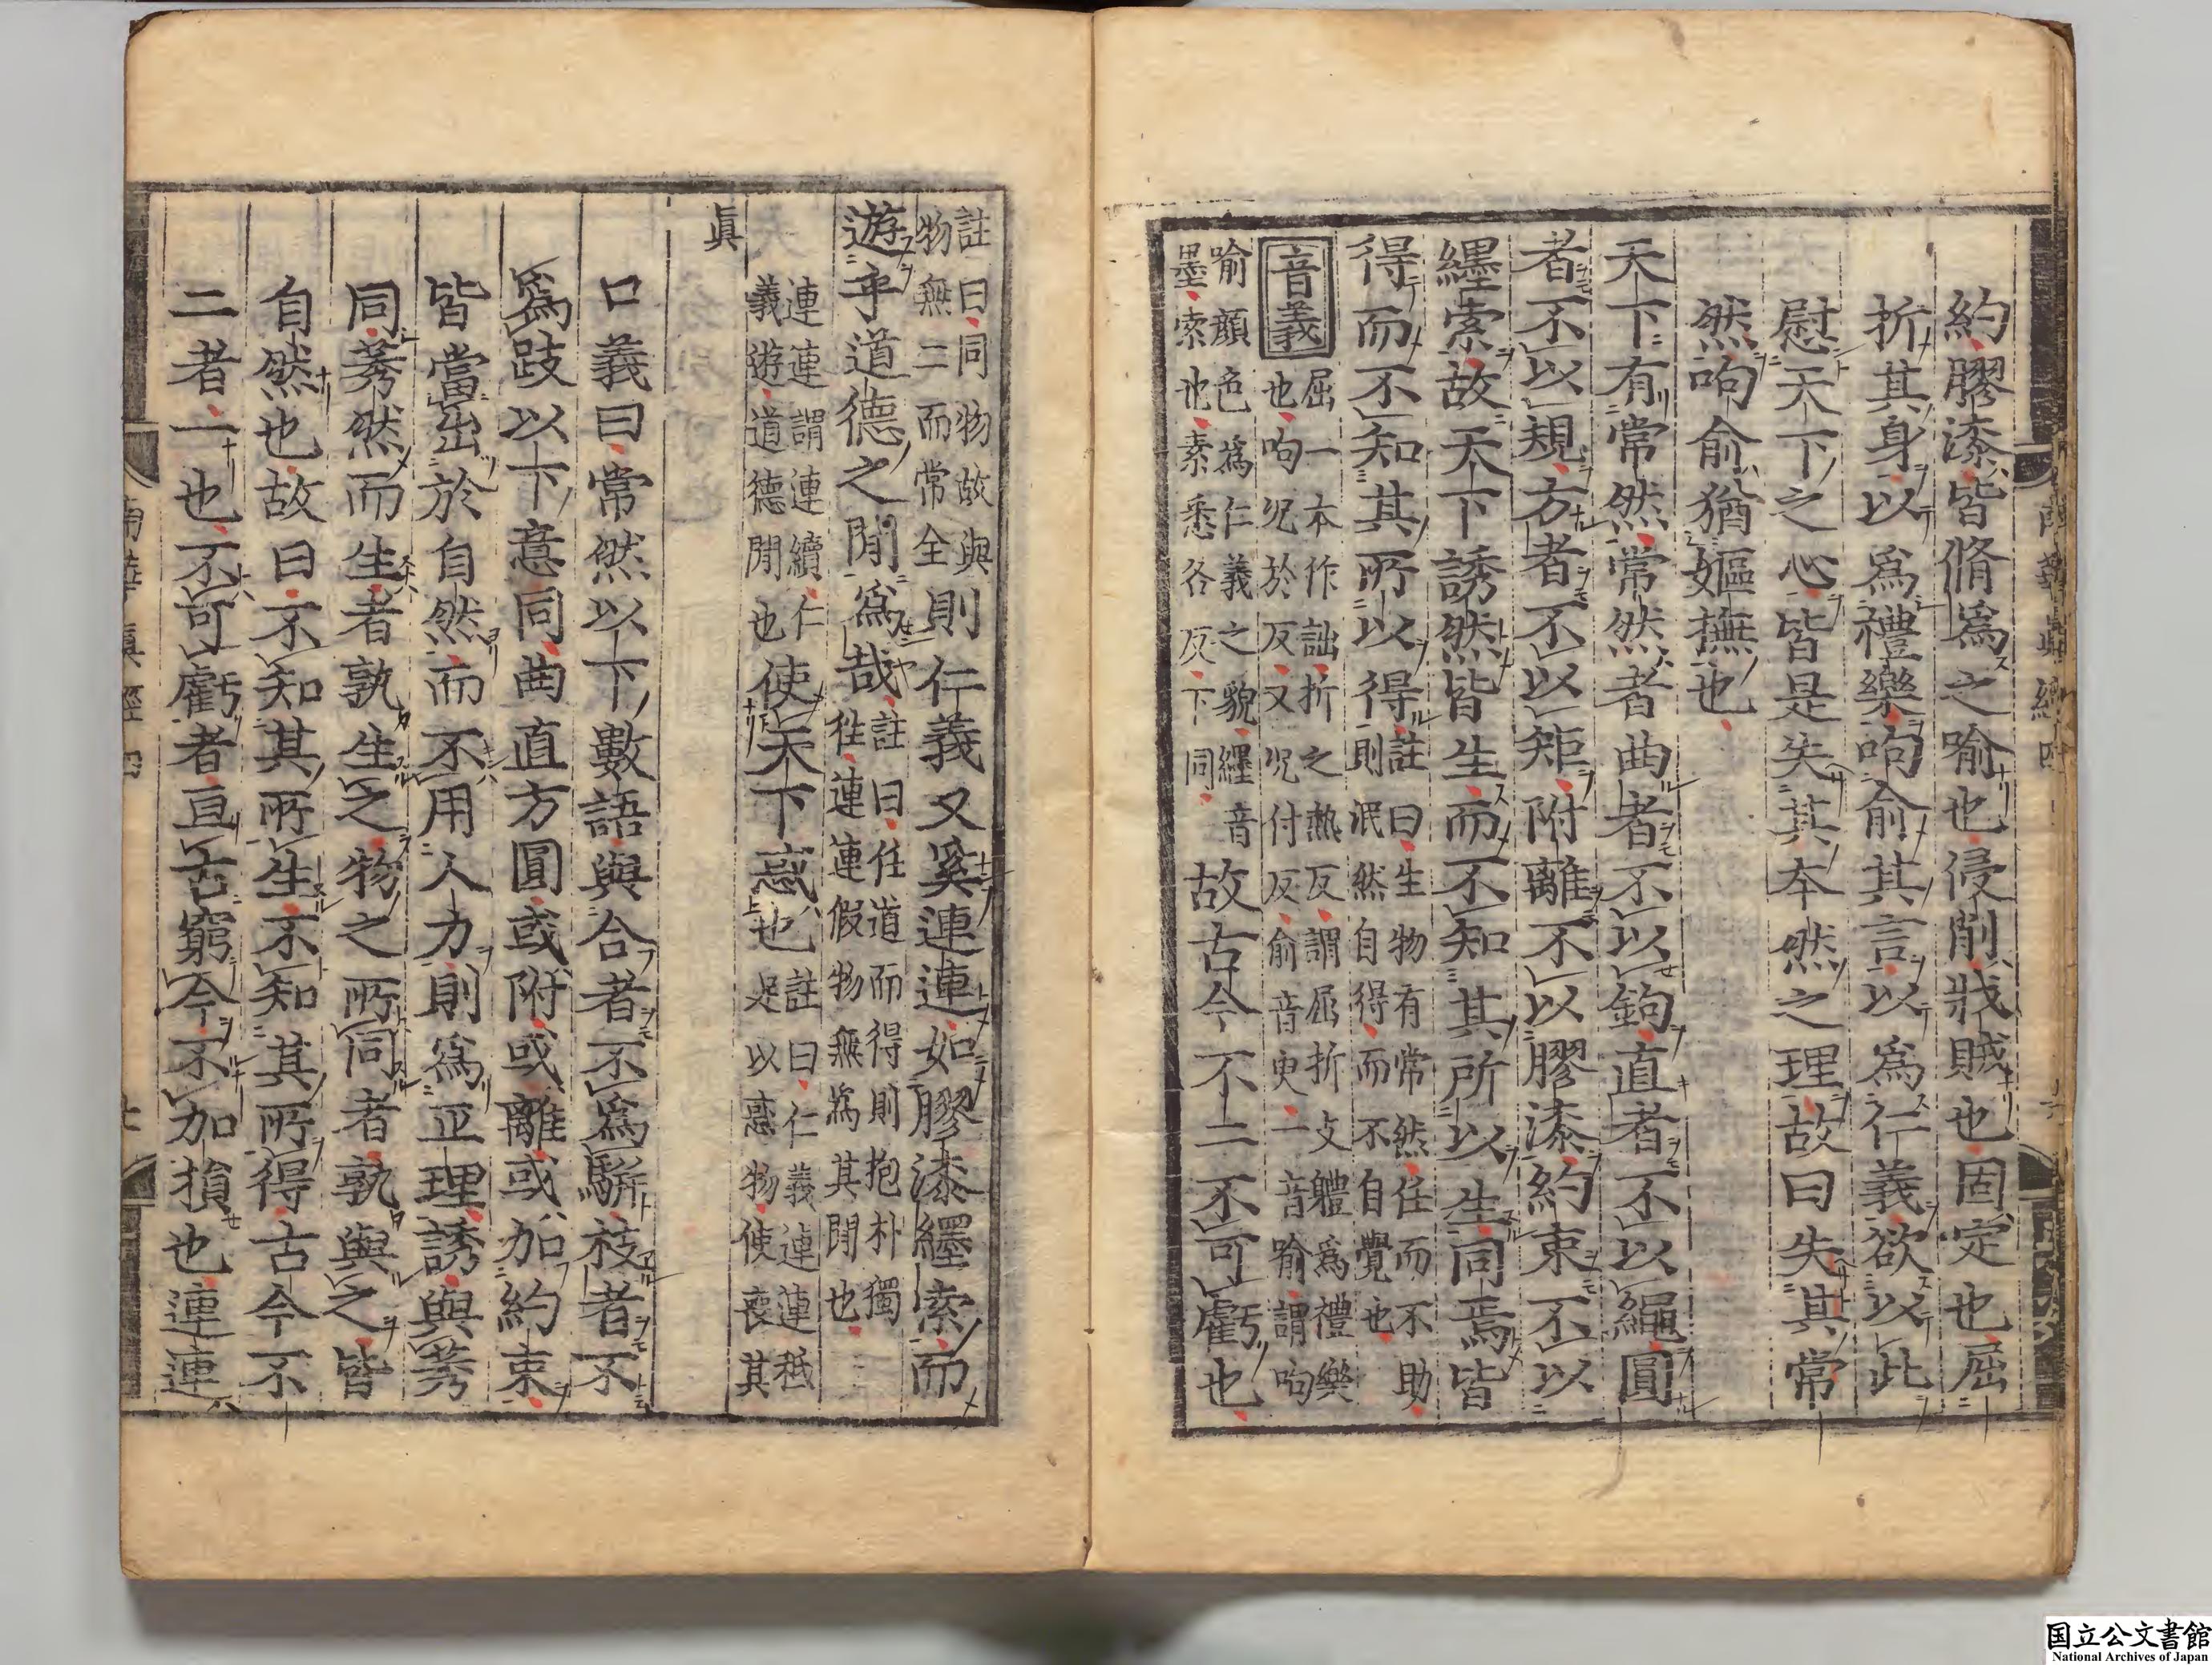 約膠漆皆脩為之喻也侵削戕賊也固定也屈
折其身以為禮樂呴俞其言以為仁義欲以此
慰天下之心皆是失其本然之理故曰失其常
然呴俞猶嫗撫也
天下有常然常然者曲者不以鉤直者不以繩圓
者不以規方者不以矩附離不以膠漆約束不以
纆索故天下誘然皆生而不知其所以生同焉皆
得而不知其所以得註曰生物有常然任而不助
則泯然自得而不自覺也
音義屈一本作詘折之熱反謂屈折支體為禮樂
也呴況於反又況付反俞音臾二音喻謂呴
喻顏色為仁義之貌纆音
墨索也素悉各反下同故古今不二不可虧也
註曰同物故與
物無二而常全則仁義又奚連連如膠漆纆索而
遊乎道德之閒為哉註曰任道而得則抱朴獨
往連連假物無為其閒也
連連謂連續仁
義遊道德閒也使天下惑也註曰仁義連連秪
足以惑物使喪其
眞
口義曰常然以下數語與合者不為駢枝者不
為跂以下意同曲直方圓或附或離或加約束
皆當出於自然而不用人力則為正理誘與莠
同莠然而生者孰生之物之所同者孰與之皆
自然也故曰不知其所生不知其所得古今不
二者一也不可虧者亘古窮今不加損也連連
南華真經四
國立公文書館
National Archives of Japan